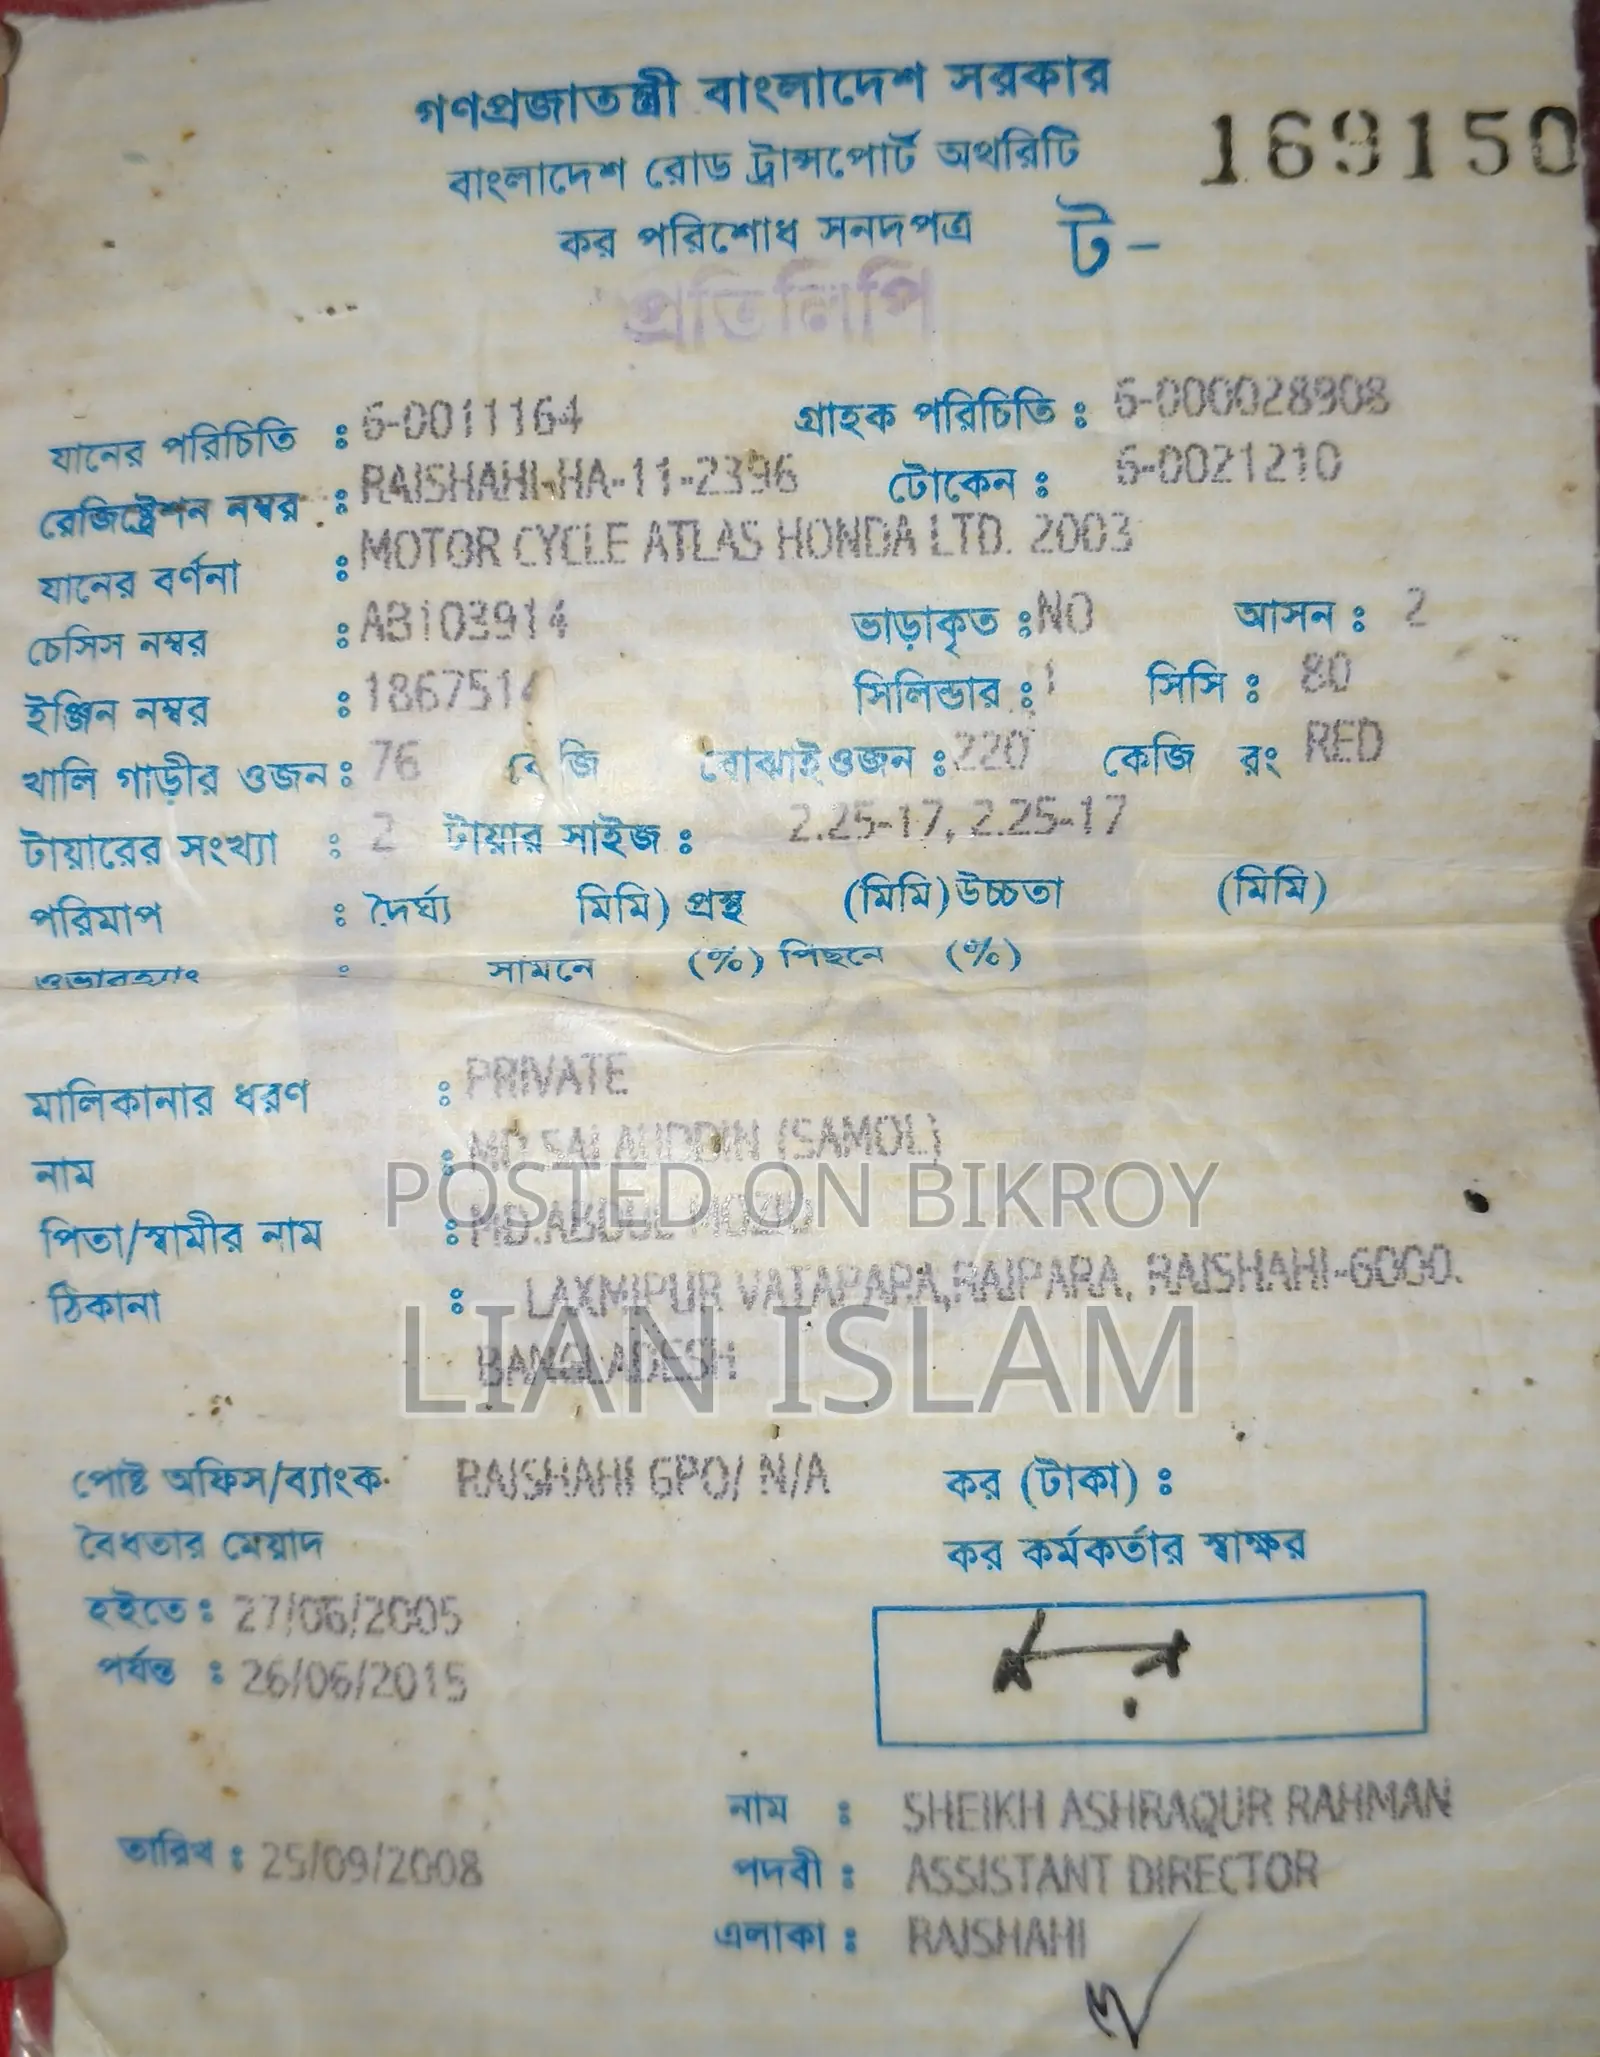 গণপ্রজাতন্ত্রী বাংলাদেশ সরকার
বাংলাদেশ রোড ট্রান্সপোর্ট অথরিটি
169150
কর পরিশোধ সনদপত্র ট-
প্রতিলিপি
যানের পরিচিতি : 6-0011164 গ্রাহক পরিচিতি : 6-000028908
রেজিষ্ট্রেশন নম্বর : RAJSHAHI-HA-11-2396 টোকেন : 6-0021210
যানের বর্ণনা : MOTOR CYCLE ATLAS HONDA LTD. 2003
চেসিস নম্বর : AB103914 ভাড়াকৃত : NO আসন : 2
ইঞ্জিন নম্বর : 1867514 সিলিন্ডার : 1 সিসি : 80
খালি গাড়ীর ওজন : 76 কেজি বোঝাইওজন : 220 কেজি রং RED
টায়ারের সংখ্যা : 2 টায়ার সাইজ : 2.25-17, 2.25-17
পরিমাপ : দৈর্ঘ্য মিমি) প্রস্থ (মিমি) উচ্চতা (মিমি)
ওভারহ্যাং : সামনে (%) পিছনে (%)
মালিকানার ধরণ : PRIVATE
নাম : MD.SALAUDDIN (SAMOL)
পিতা/স্বামীর নাম : MD.ABDUL
POSTED ON BIKROY
ঠিকানা : LAXMIPUR VATAPARA,RAJPARA, RAJSHAHI-6000.
BANGLADESH
LIAN ISLAM
পোষ্ট অফিস/ব্যাংক RAJSHAHI GPO/ N/A কর (টাকা) :
বৈধতার মেয়াদ কর কর্মকর্তার স্বাক্ষর
হইতে : 27/06/2005
পর্যন্ত : 26/06/2015
নাম : SHEIKH ASHRAQUR RAHMAN
তারিখ : 25/09/2008 পদবী : ASSISTANT DIRECTOR
এলাকা : RAJSHAHI